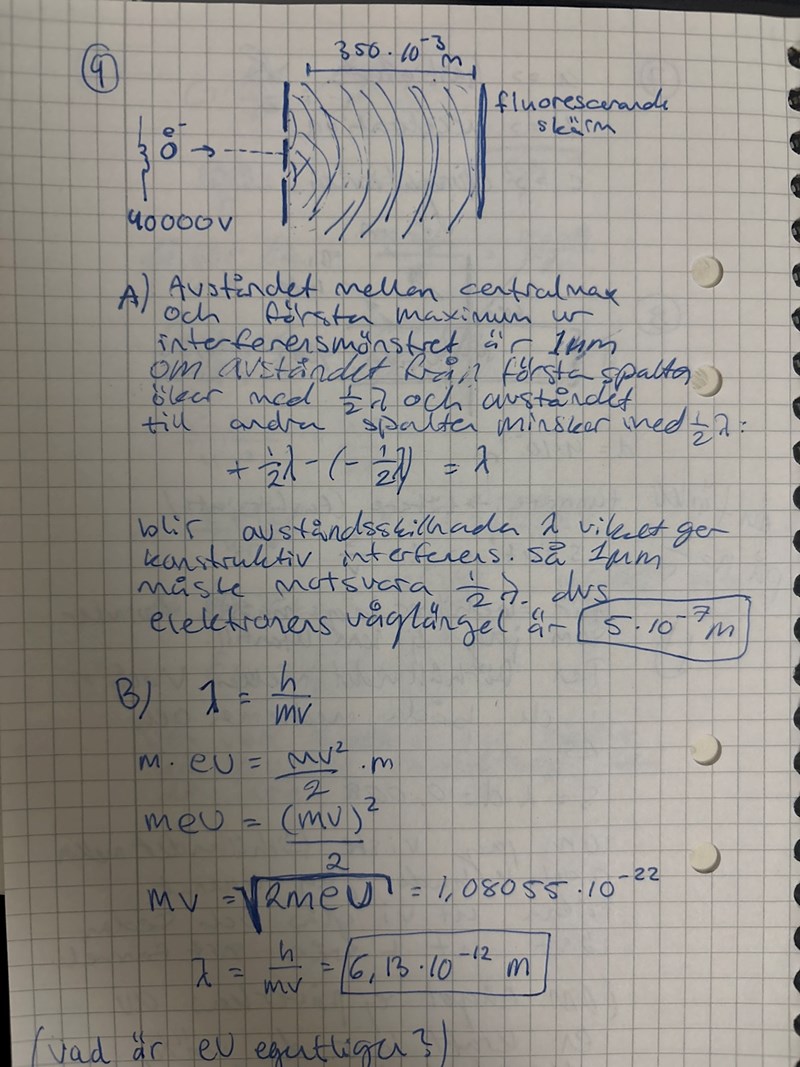 9
350·10⁻³ m
fluorescerande
skärm
e⁻
40000V
A) Avståndet mellan centralmax
och första maximum ur
interferensmönstret är 1µm
om avståndet från första spalten
ökar med ½λ och avståndet
till andra spalten minskar med ½λ:
+ ½λ - (-½λ) = λ
blir avståndsskillnaden λ vilket ger
konstruktiv interferens. Så 1µm
måste motsvara ½λ. dvs
elektronens våglängd är 5·10⁻⁷ m
B) λ = h/mv
m·eU = mv²/2 ·m
meU = (mv)²/2
mv = √2meU = 1,08055·10⁻²²
λ = h/mv = 6,13·10⁻¹² m
(vad är eU egentligen?)